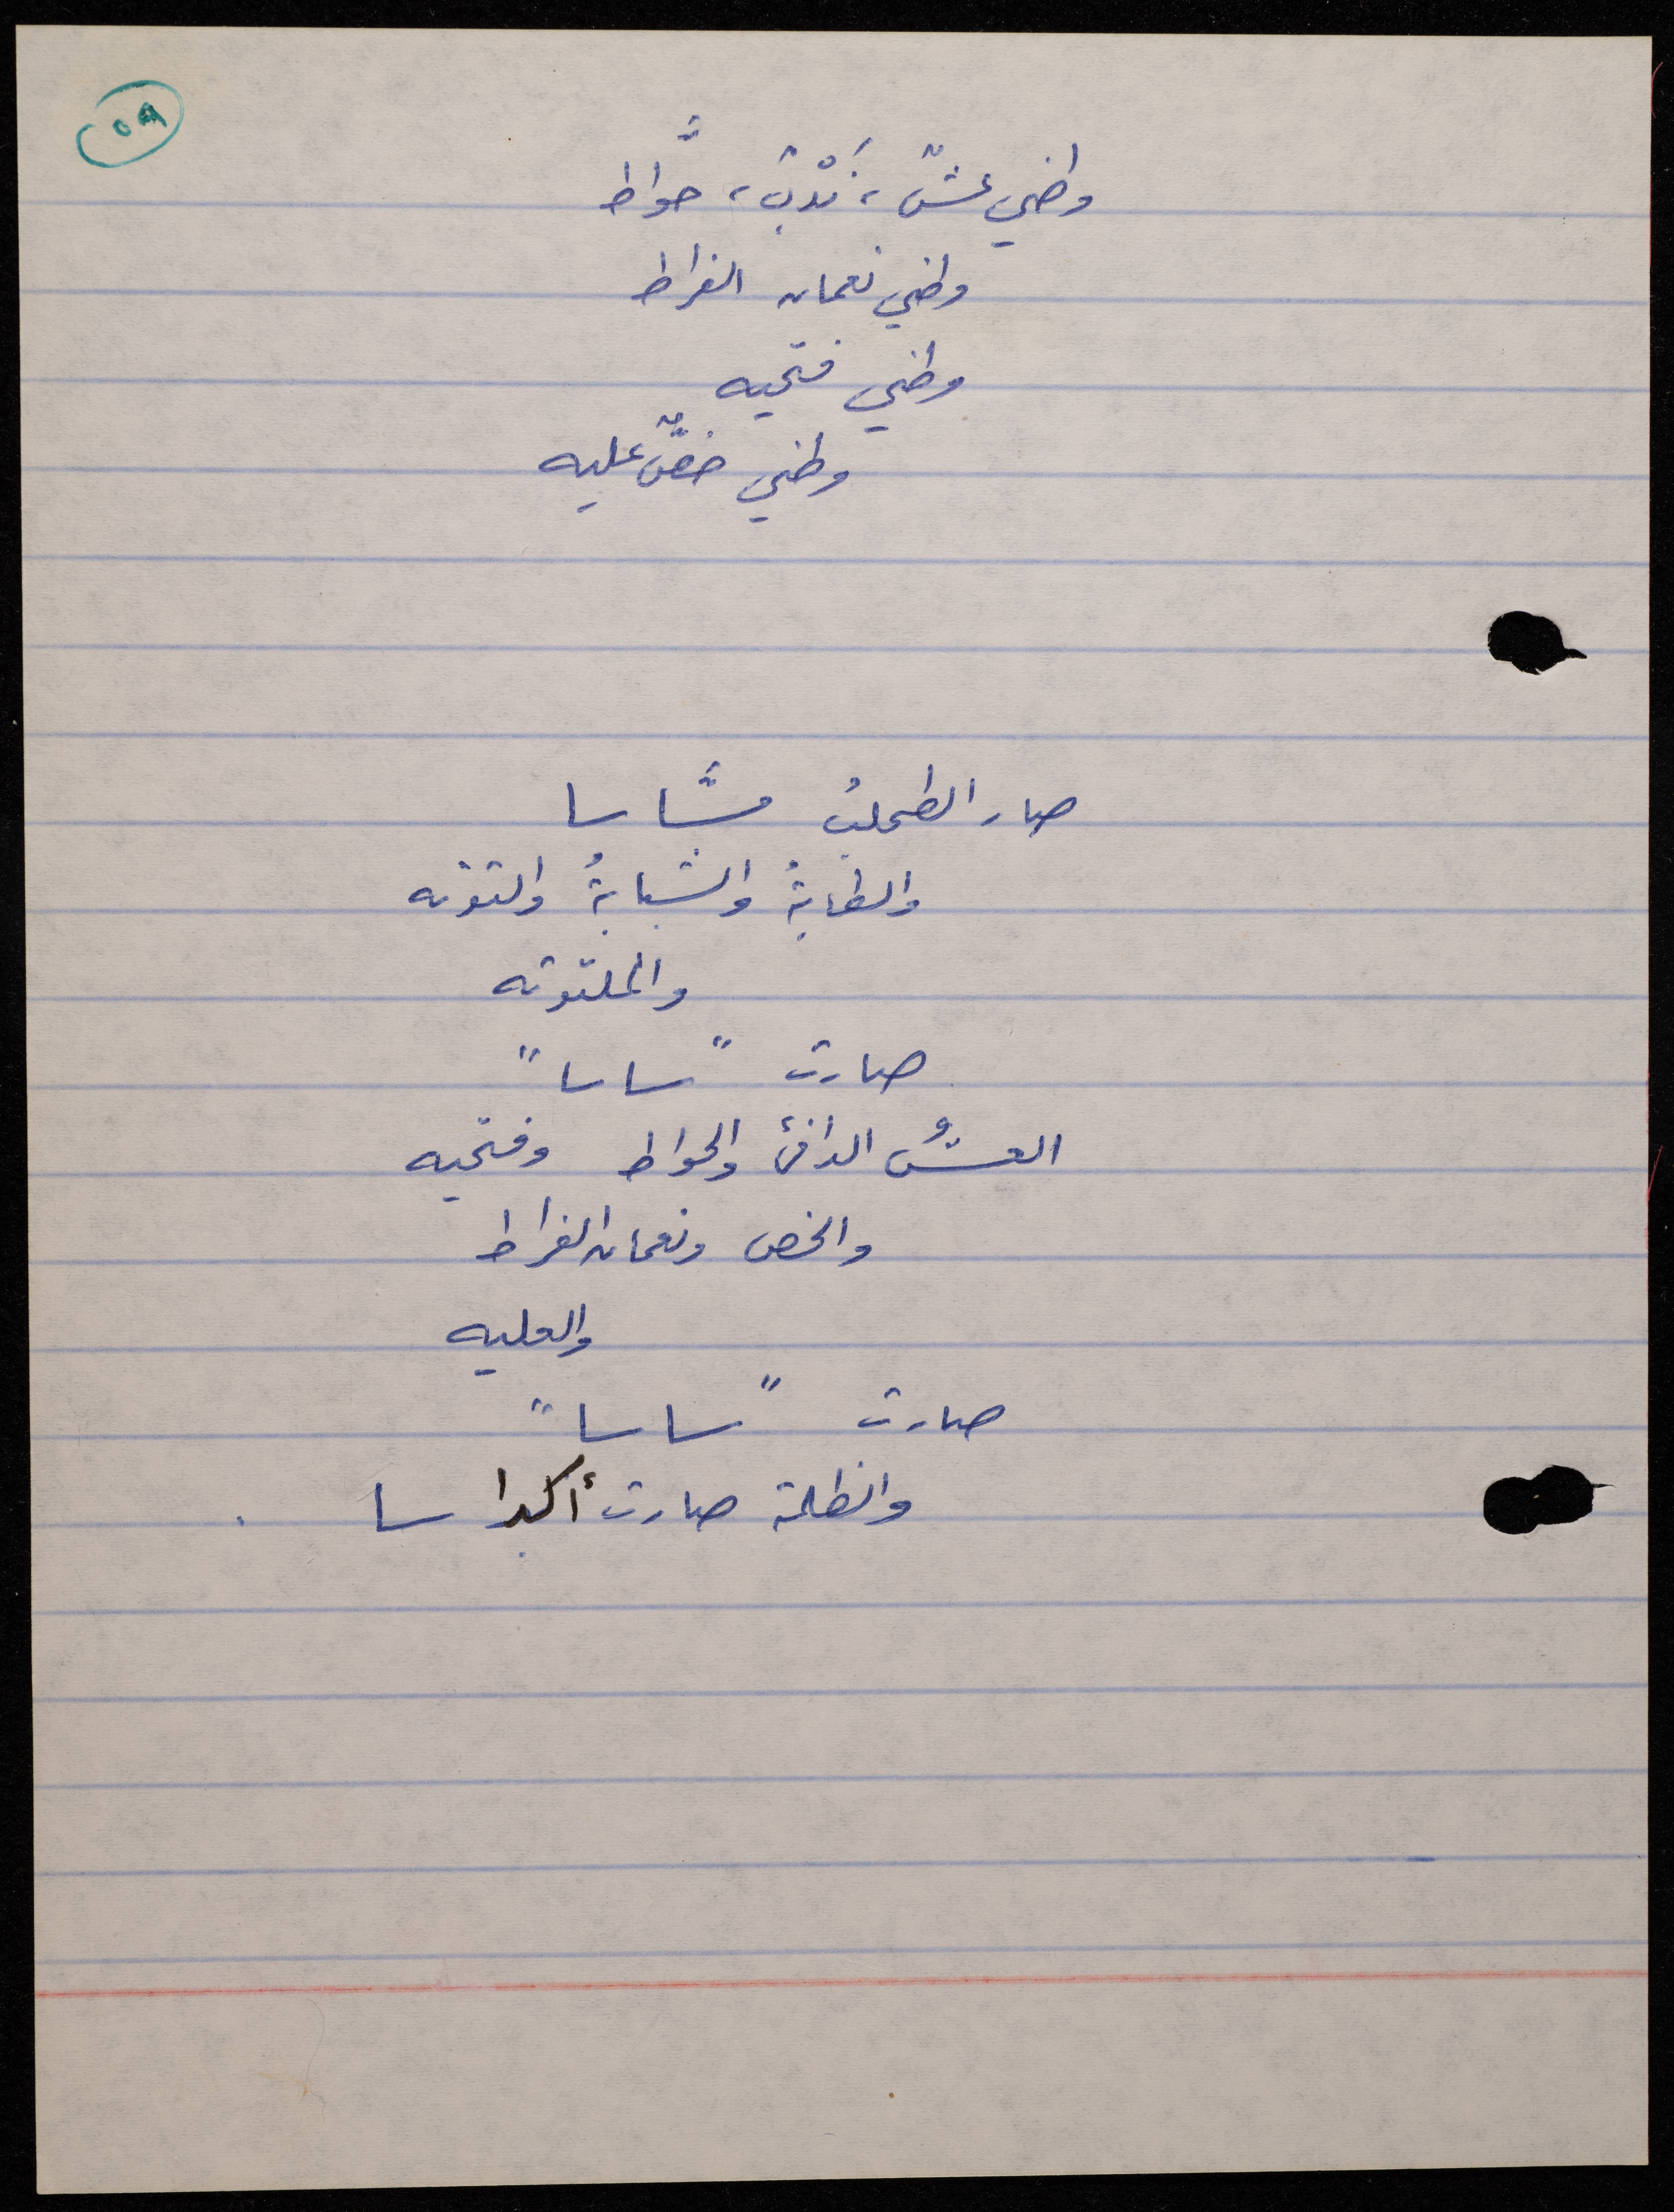 ٥٩
وطني عشّ، نَدْبٌ، حوَّاط
وطني نعمان الفراط
وطني فتحيه
وطني خصٌّ عليه
صار الطحلبُ مسَّاسا
والطابةُ والشبابةُ والتوته
والملتوته
صارت "ساسا"
العشُّ الدافئ والحواط وفتحيه
والخص ونعمان الفراط
والعليه
صارت "ساسا"
والظلمة صارت أكداسا .